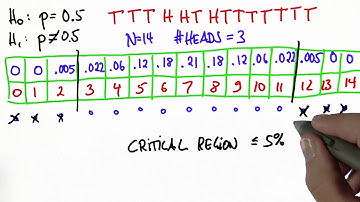 H₀: p = 0.5 T T T H H T H T T T T T T T
H₁: p ≠ 0.5 N=14 #HEADS = 3
0 0 .005 .022 .06 .12 .18 .21 .18 .12 .06 .022 .005 0 0
0 1 2 3 4 5 6 7 8 9 10 11 12 13 14
x x x o o o o o o o o o x x x
CRITICAL REGION ≤ 5%